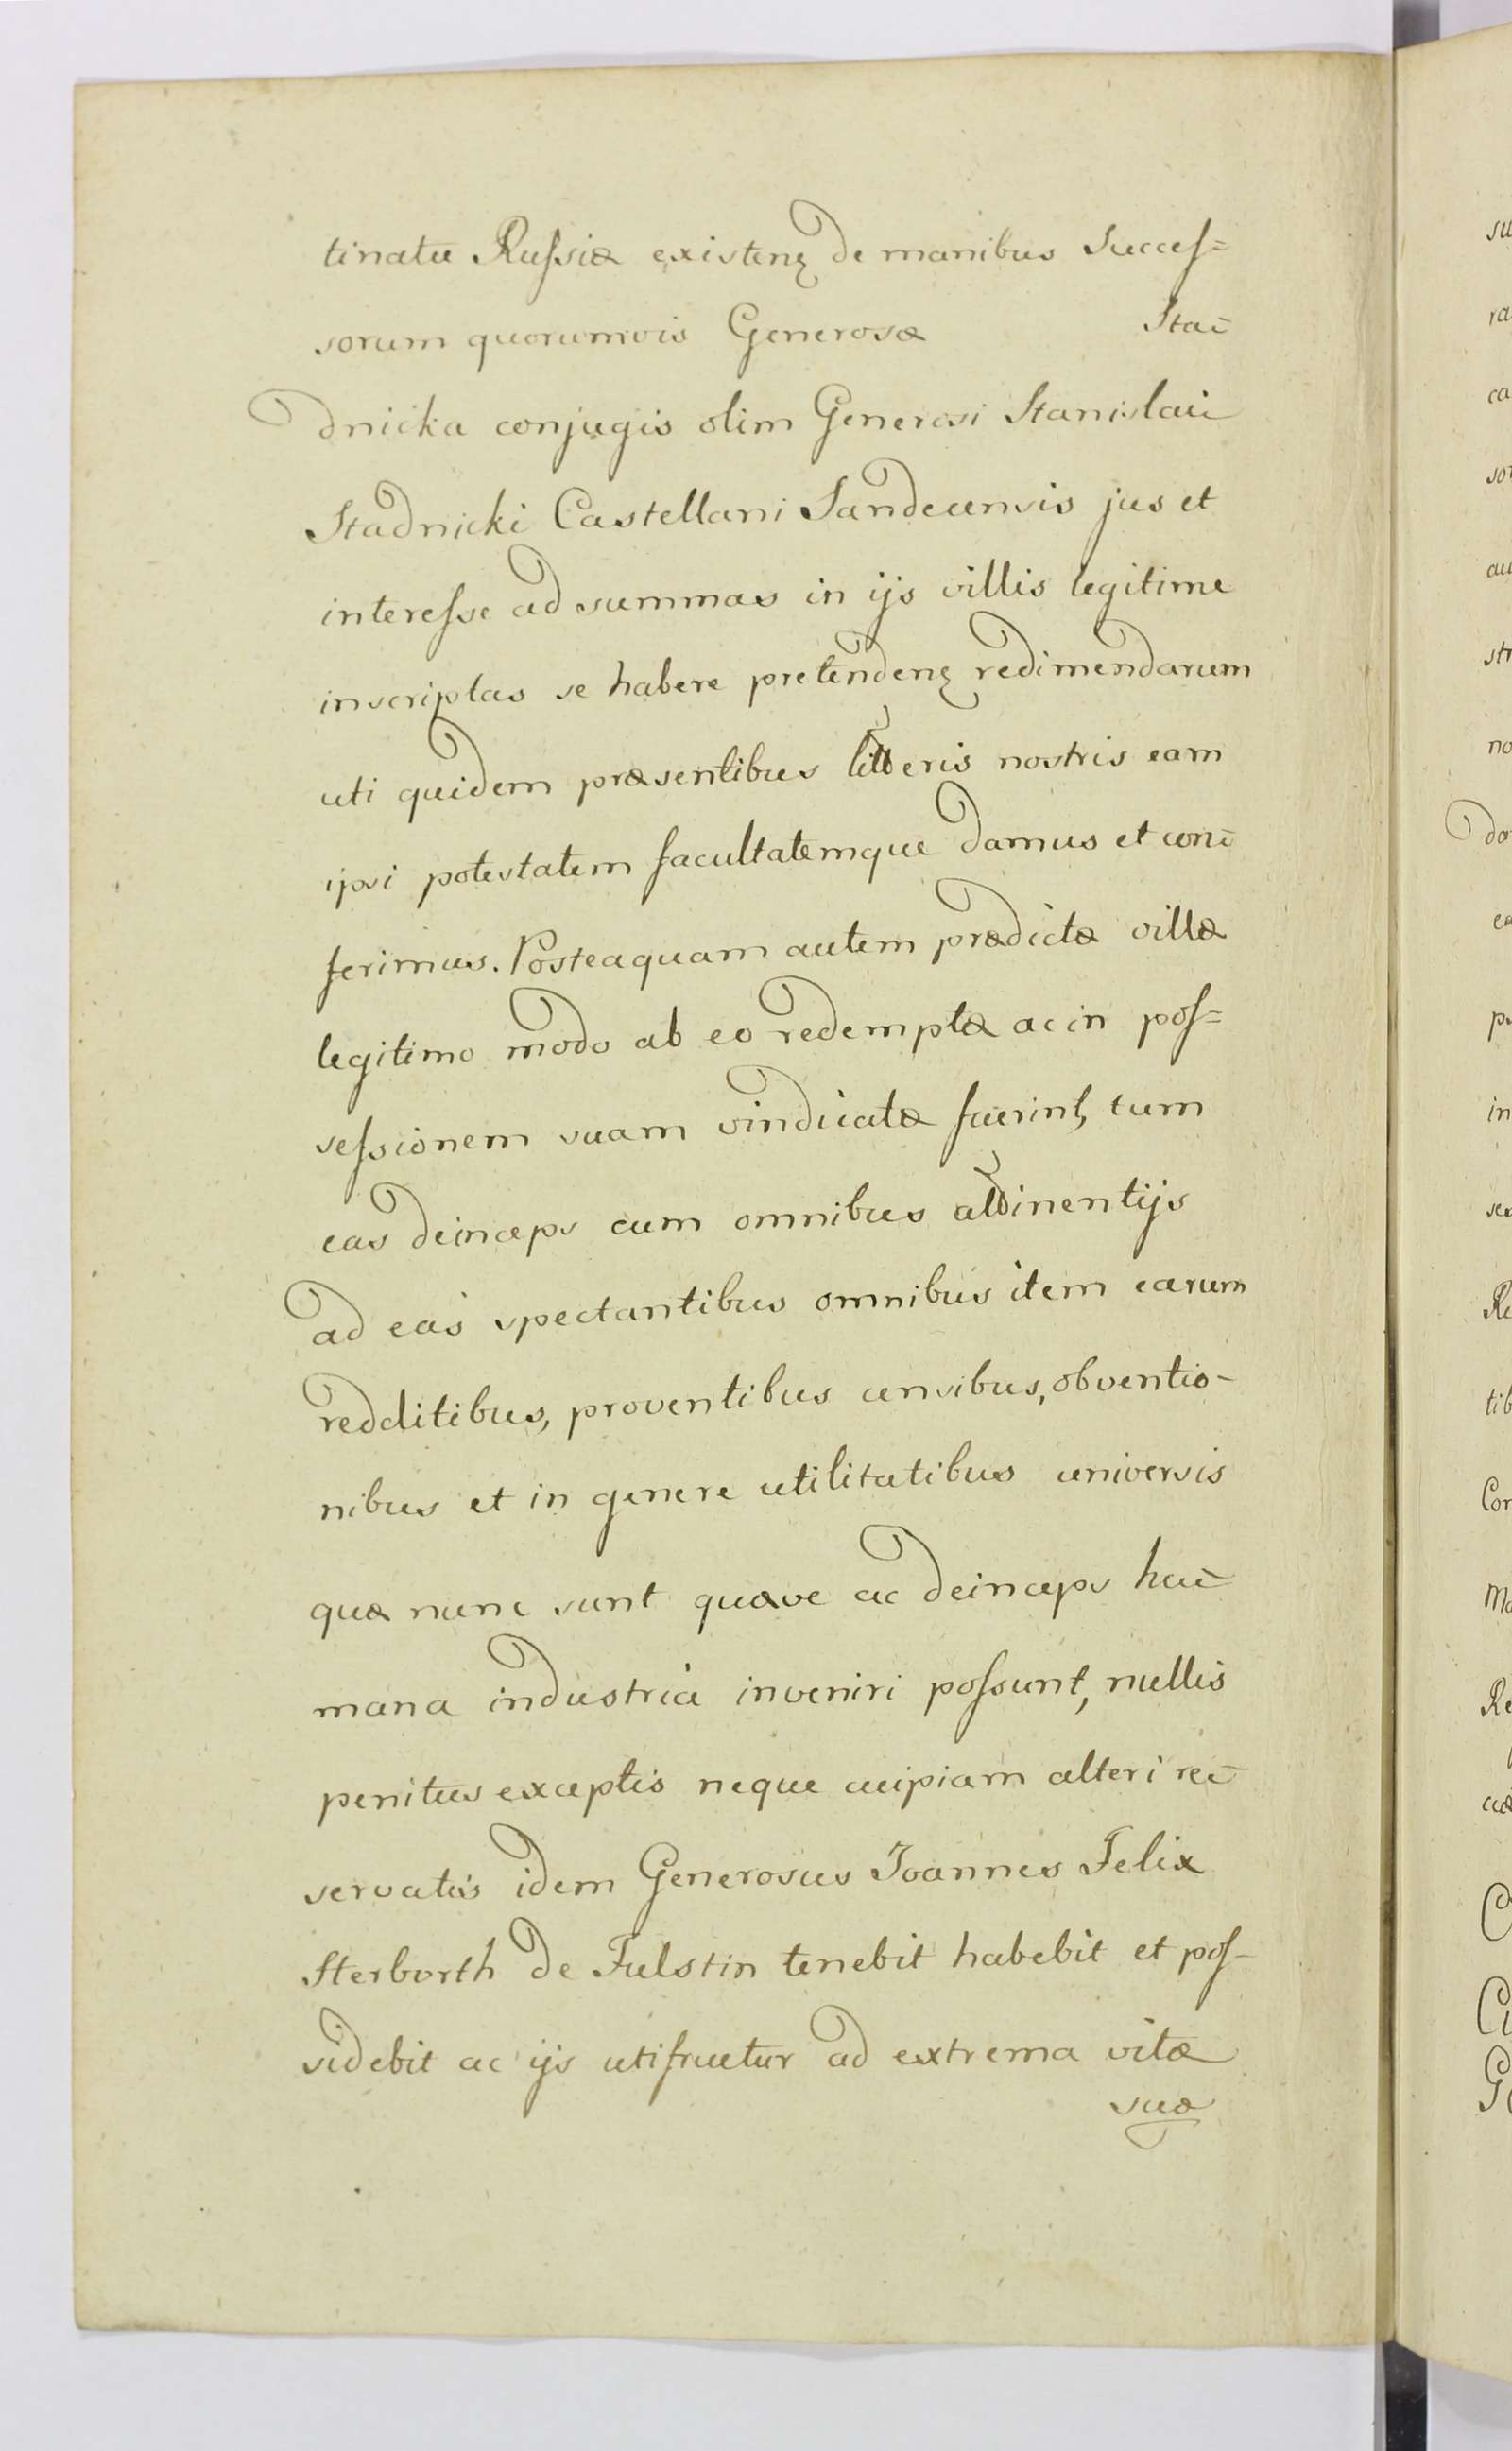 tinatu Russiæ existenę de manibus Succes=
sorum quorumvis Generosæ Sta=
dnicka conjugis olim Generosi Stanislai
Stadnicki Castellani Sandecensis jus et
interesse ad summas in ijs villis legitime
inscriptas se habere pretendenę redimendarum
uti quidem præsentibus litteris nostris eam
ipsi potestatem facultatemque damus et con=
ferimus. Posteaquam autem prædictæ villæ
legitimo modo ab eo redemptæ ac in pos=
sessionem suam vindicatæ fuerint, tum
eas deinceps cum omnibus attinentijs
ad eas spectantibus omnibus item earum
redditibus, proventibus censibus, obventio-
nibus et in genere utilitatibus universis
quæ nunc sunt quæve ac deinceps hu=
mana industria inveniri possunt, nullis
penitus exceptis neque cuipiam alteri re=
servatis idem Generosus Joannes Felix
Sterborth de Fulstin tenebit habebit et pos-
sidebit ac ijs utifruetur ad extrema vitæ
suæ
su
ra
ca
sor
au
str
no
do
ea
in
Re
tib
Cor
Ma
Re